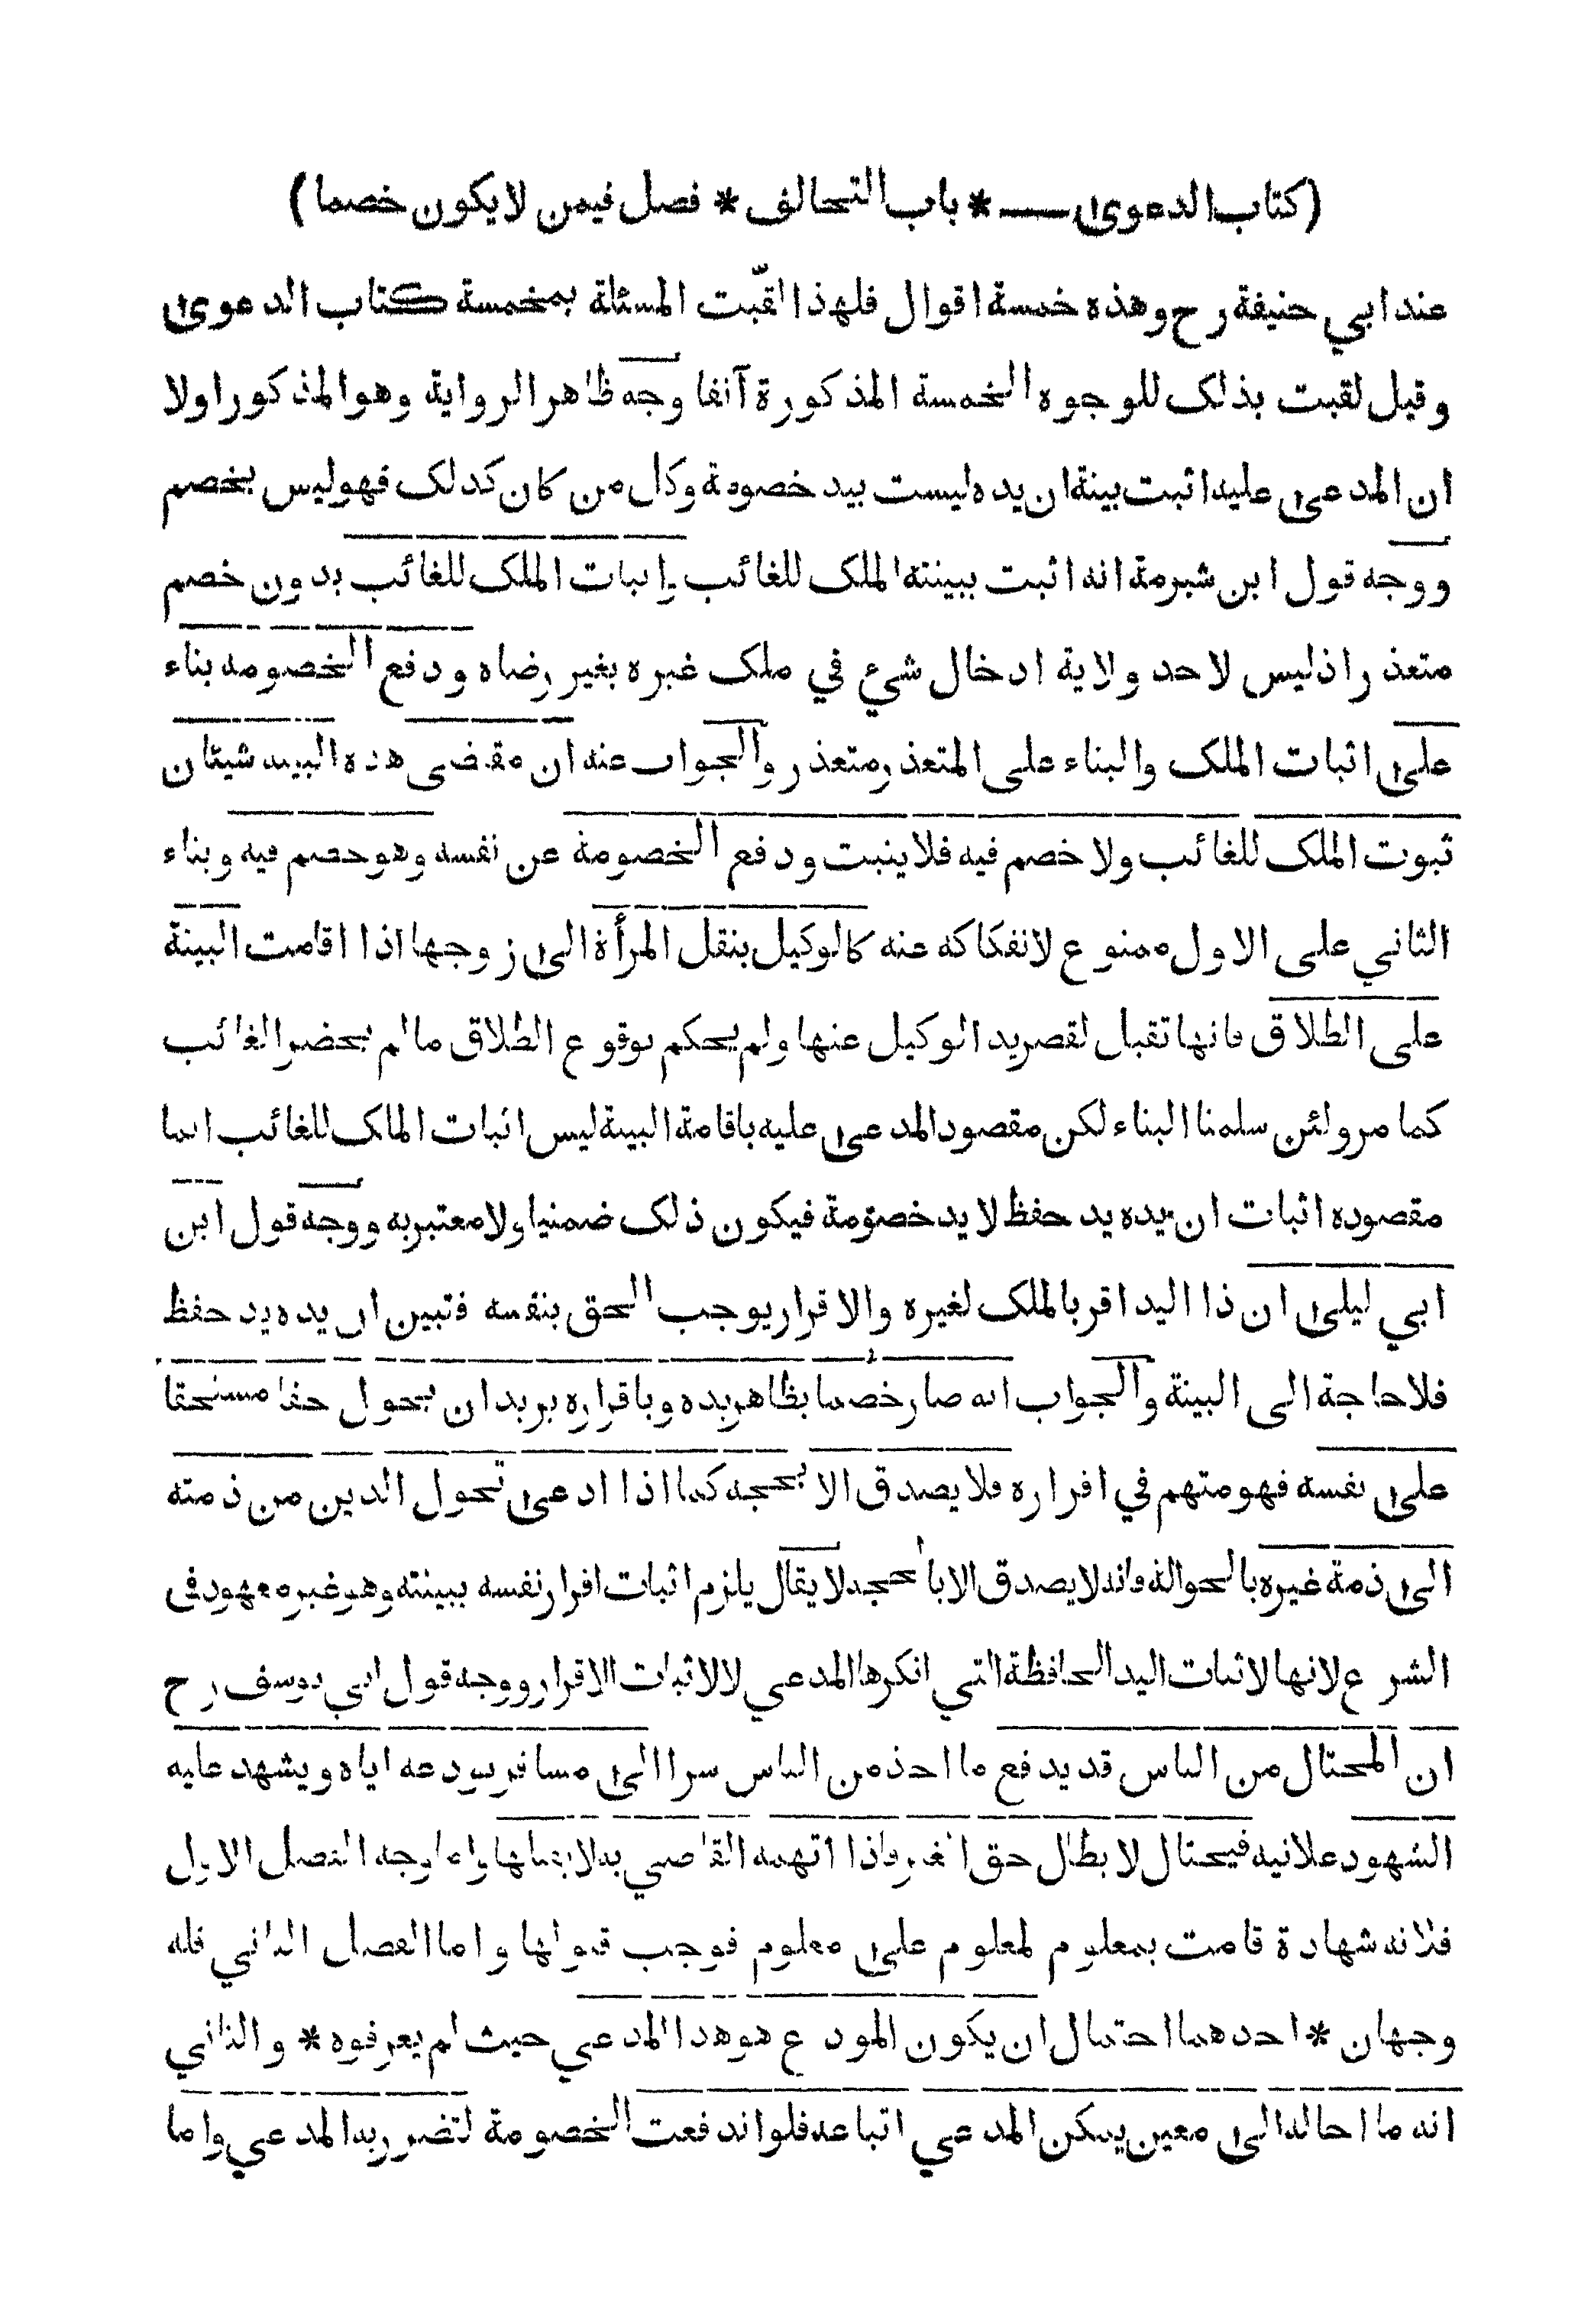 (كتاب الدعوى — * باب التحالف * فصل فيمن لا يكون خصما)
عند ابي حنيفة رح وهذه خمسة اقوال فلهذا لقّبت المسئلة بمخمسة كتاب الدعوى
وقيل لقبت بذلك للوجوه الخمسة المذكورة آنفا وجه ظاهر الرواية وهو المذكور اولا
ان المدعى عليه اثبت ببينة ان يده ليست بيد خصومة وكل من كان كذلك فهو ليس بخصم
ووجه قول ابن شبرمة انه اثبت ببينته الملك للغائب واثبات الملك للغائب بدون خصم
متعذر اذ ليس لاحد ولاية ادخال شيء في ملك غيره بغير رضاه ودفع الخصومه بناء
على اثبات الملك والبناء على المتعذر متعذر والجواب عنه ان مقتضى هذه البينه شيئان
ثبوت الملك للغائب ولا خصم فيه فلا يثبت ودفع الخصومة عن نفسه وهو خصم فيه وبناء
الثاني على الاول ممنوع لانفكاكه عنه كالوكيل بنقل المرأة الى زوجها اذا اقامت البينة
على الطلاق فانها تقبل لقصر يد الوكيل عنها ولم يحكم بوقوع الطلاق ما لم يحضر الغائب
كما مر ولئن سلمنا البناء لكن مقصود المدعى عليه باقامة البينة ليس اثبات الملك للغائب انما
مقصوده اثبات ان يده يد حفظ لا يد خصومة فيكون ذلك ضمنيا ولا معتبر به ووجه قول ابن
ابي ليلى ان ذا اليد اقر بالملك لغيره والاقرار يوجب الحق بنفسه فتبين ان يده يد حفظ
فلا حاجة الى البينة والجواب انه صار خصما بظاهر يده وباقراره يريد ان يحول حقا مستحقا
على نفسه فهو متهم في اقراره فلا يصدق الا بحجه كما اذا ادعى تحول الدين من ذمته
الى ذمة غيره بالحوالة فانه لا يصدق الا بالحجه لا يقال يلزم اثبات اقرار نفسه ببينته وهو غير معهود في
الشرع لانها لاثبات اليد الحافظة التي انكرها المدعي لا لاثبات الاقرار ووجه قول ابي يوسف رح
ان المحتال من الناس قد يدفع ما اخذ من الناس سرا الى مسافر يودعه اياه ويشهد عليه
الشهود علانيه فيحتال لابطال حق الغير فاذا اتهمه القاضي به لا يقبلها واما وجه الفصل الاول
فلانه شهادة قامت بمعلوم لمعلوم على معلوم فوجب قبولها واما الفصل الثاني فله
وجهان * احدهما احتمال ان يكون المودع هو هذا المدعي حيث لم يعرفوه * والثاني
انه ما احاله الى معين يمكن المدعي اتباعه فلو اندفعت الخصومة لتضرر به المدعي واما